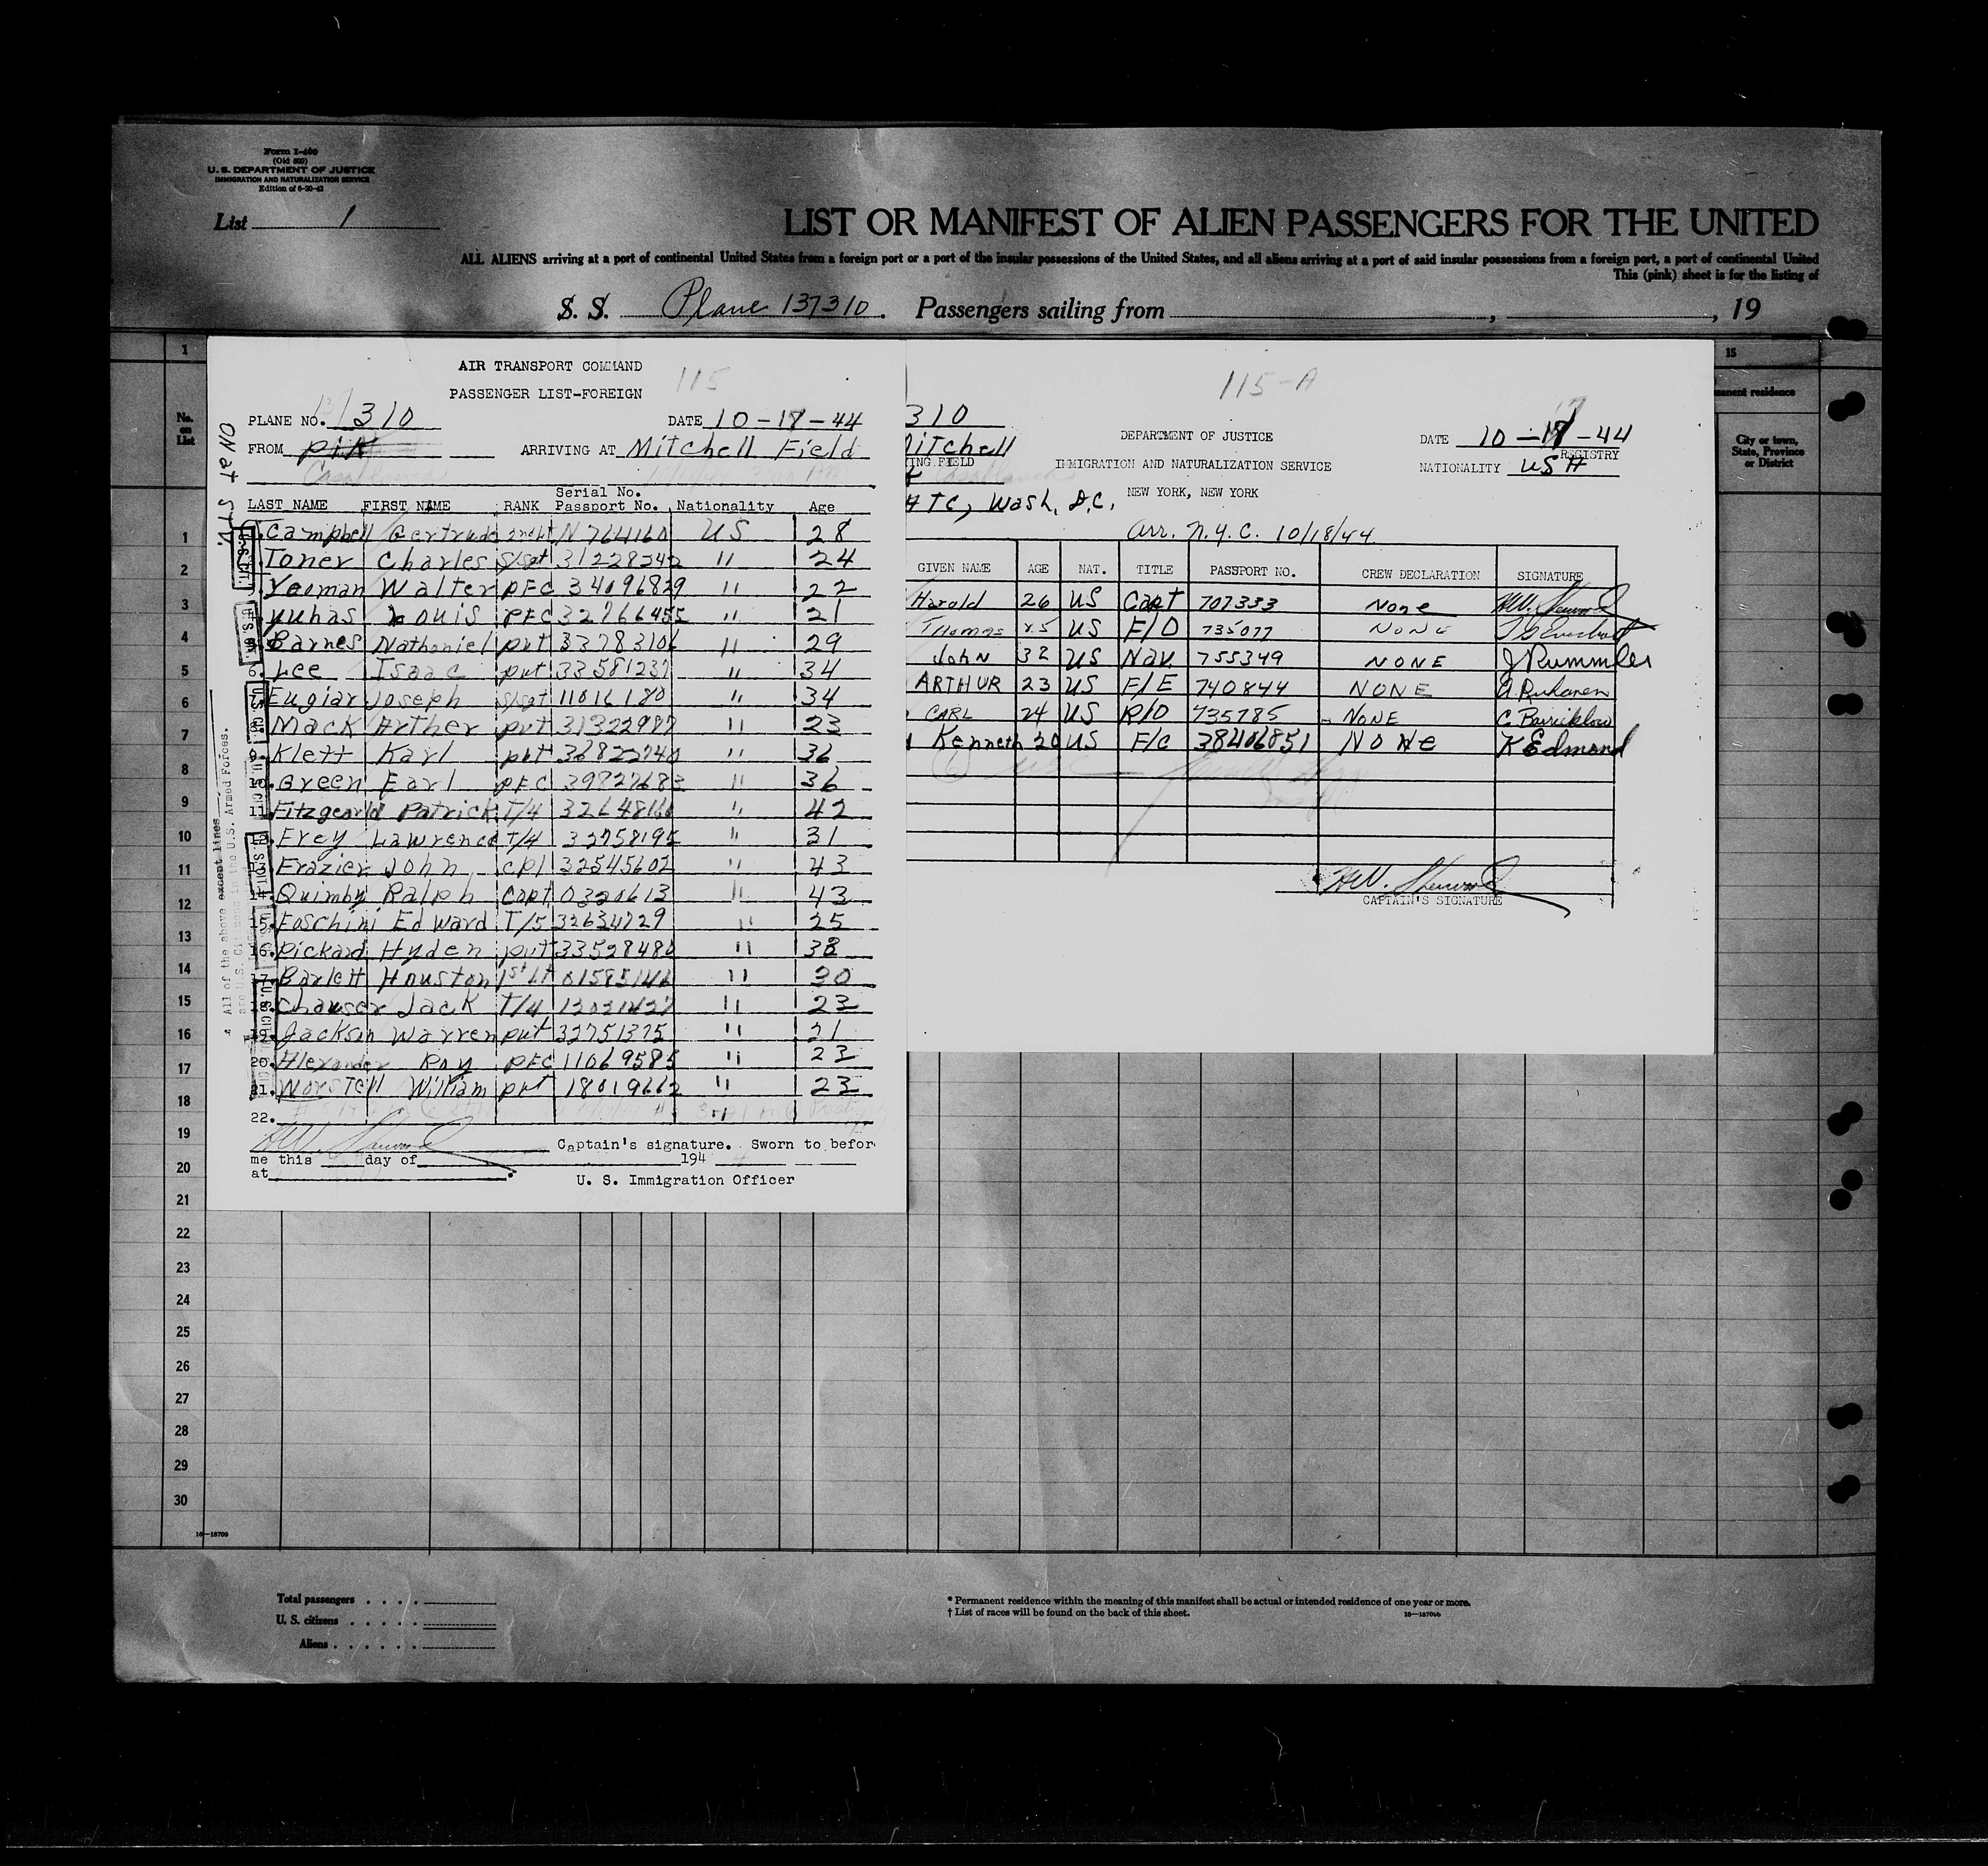 Form I-460
(Old 500)
U. S. DEPARTMENT OF JUSTICE
IMMIGRATION AND NATURALIZATION SERVICE
Edition of 6-20-42
List 1
LIST OR MANIFEST OF ALIEN PASSENGERS FOR THE UNITED
ALL ALIENS arriving at a port of continental United States from a foreign port or a port of the insular possessions of the United States, and all aliens arriving at a port of said insular possessions from a foreign port, a port of continental United
This (pink) sheet is for the listing of
S. S. Plane 137310. Passengers sailing from , , 19
AIR TRANSPORT COMMAND
115
PASSENGER LIST-FOREIGN
PLANE NO. 310 DATE 10-17-44
FROM ARRIVING AT Mitchell Field
Casablanca
LAST NAME FIRST NAME RANK Serial No. Passport No. Nationality Age
1. Campbell Gertrude 2nd Lt N 764160 US 28
Toner Charles S/Sgt 31228242 " 24
Yeoman Walter PFC 34096829 " 22
Yuhas Louis PFC 32766455 " 21
Barnes Nathaniel pvt 33783106 " 29
6. Lee Isaac pvt 33581237 " 34
7. Eugiar Joseph S/Sgt 11016180 " 34
8. Mack Arther pvt 31322987 " 23
9. Klett Karl pvt 36822740 " 36
10. Green Earl PFC 39827683 " 36
11. Fitzgearld Patrick T/4 32648166 " 42
12. Frey Lawrence T/4 32758195 " 31
13. Frazier John cpl 32545602 " 43
14. Quimby Ralph Capt 0320613 " 43
15. Foschini Edward T/5 32634729 " 25
16. Pickard Hyden pvt 33528480 " 38
17. Barlett Houston 1st Lt 01585146 " 30
18. Chauser Jack T/4 13031427 " 23
19. Jackson Warren pvt 32751375 " 21
20. Alexander Roy PFC 11069585 " 23
21. Worstell William pvt 18019662 " 23
22.
Captain's signature. Sworn to before
me this day of 194
at .
U. S. Immigration Officer
All of the above except lines
are U.S. Citizens in the U.S. Armed Forces.
115-A
310
Mitchell
DEPARTMENT OF JUSTICE
DATE 10-17-44
ING FIELD
IMMIGRATION AND NATURALIZATION SERVICE
REGISTRY
NATIONALITY USA
ATC, Wash, D.C.
NEW YORK, NEW YORK
Arr. N.Y.C. 10/18/44
GIVEN NAME AGE NAT. TITLE PASSPORT NO. CREW DECLARATION SIGNATURE
Harold 26 US Capt 707333 None
Thomas 25 US F/O 735077 NONE
John 32 US Nav 755349 NONE J Rummler
ARTHUR 23 US F/E 740844 NONE A Ruhanen
CARL 24 US R/O 735785 NONE C Barricklow
Kenneth 20 US F/C 38406851 NONE K Edmond
CAPTAIN'S SIGNATURE
15
manent residence
City or town, State, Province or District
No. on List
1
2
3
4
5
6
7
8
9
10
11
12
13
14
15
16
17
18
19
20
21
22
23
24
25
26
27
28
29
30
16—18709
Total passengers
U. S. citizens
Aliens
* Permanent residence within the meaning of this manifest shall be actual or intended residence of one year or more.
† List of races will be found on the back of this sheet.